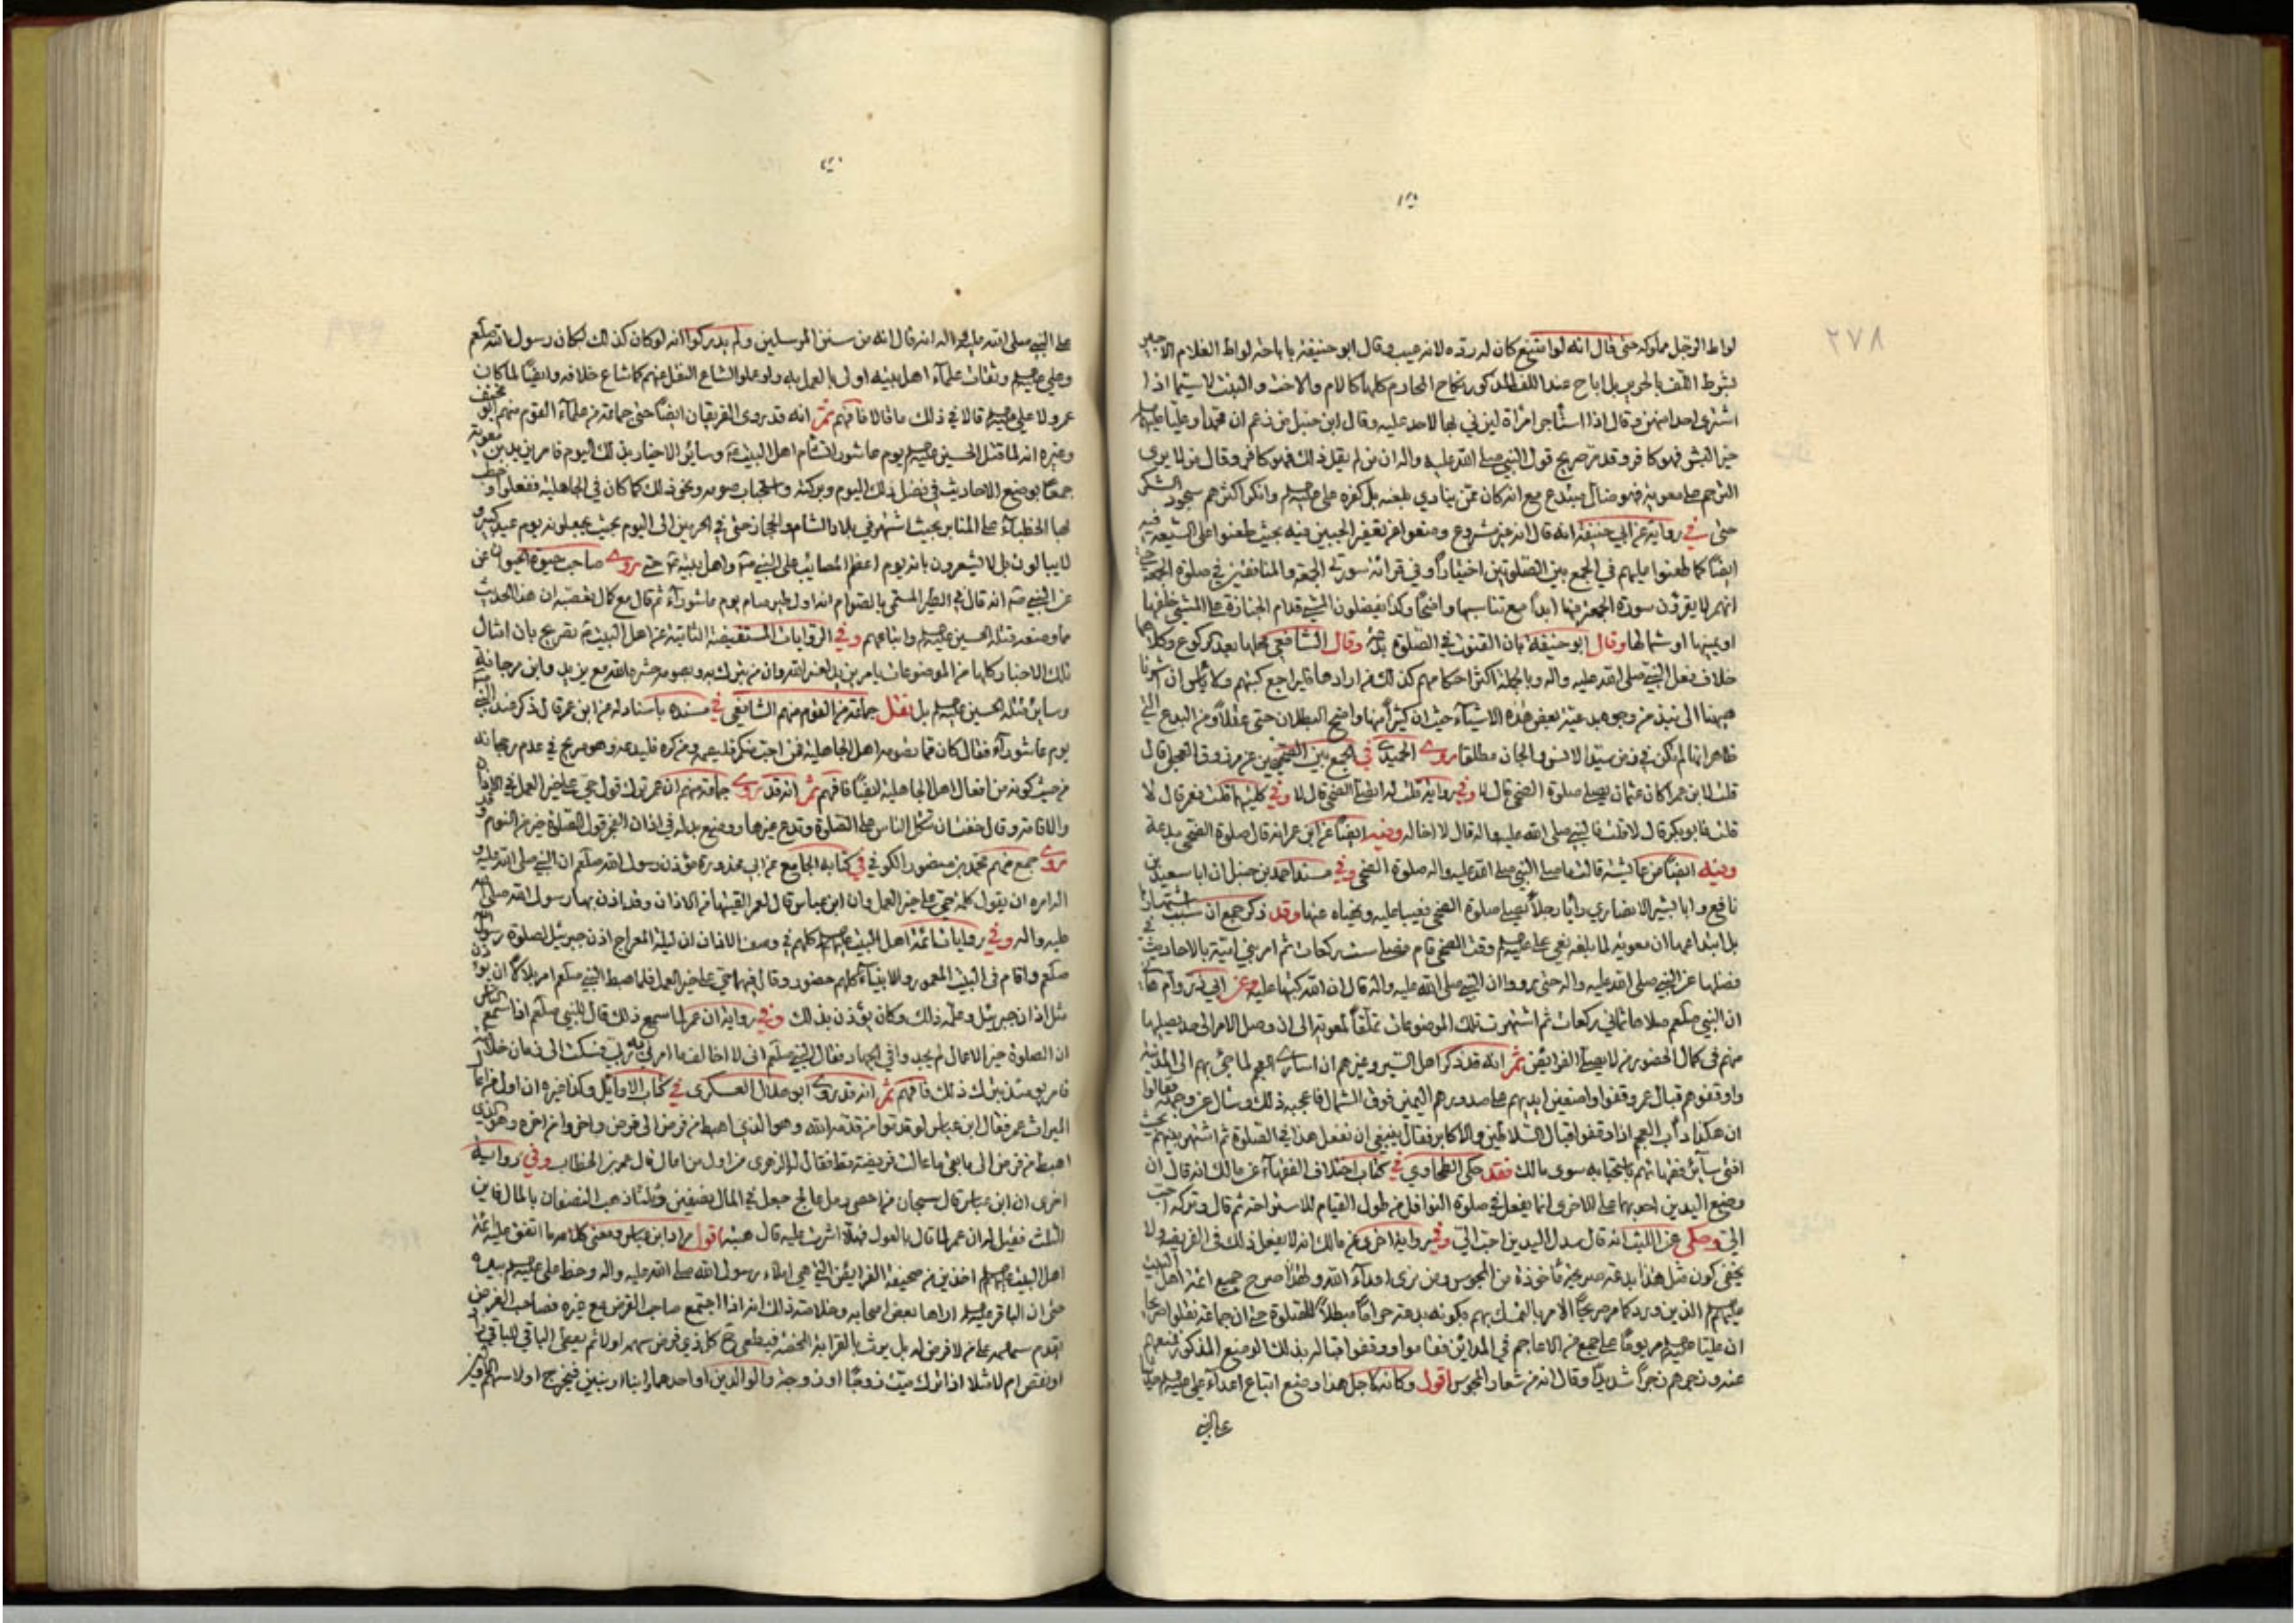 ٢٧٨
لواط الرجل مملوكه حتى قال انه لو امتنع كان له رده لانه عيب وقال ابو حنيفة باباحة لواط الغلام الاجير
بشرط اللف بالحرير بل اباح عند اللف المذكور نكاح المحارم كلها كالام والاخت والبنت لا سيما اذا
اشترى احدا منهن وقال اذا استأجر امراة ليزني بها لا حد عليه وقال ابن حنبل من زعم ان محمدا وعليا
خير البشر فهو كافر وقد مر صريح قول النبي صلى الله عليه واله ان من لم يقل ذلك فهو كافر وقال من لا يرى
الترحم على معوية فهو ضال مبتدع مع انه كان ممن ينادي بل كفره على وانكر اكثرهم سجود الشكر
حتى في رواية عن ابي حنيفة انه قال انه غير مشروع ومنعوا من تعفير الجبين فيه بحيث طعنوا على الشيعة فيه
ايضا كما طعنوا عليهم في الجمع بين الصلوتين اختيارا وفي قرائة سورتي الجمعة والمنافقين في صلوة الجمعة
انهم لا يقرؤن سورة الجمعة فيها ابدا مع تناسبها واضحا وكذا يفضلون المشي قدام الجنازة على المشي خلفها
او يمينها او شمالها وقال ابو حنيفة بان القنوت في الصلوة بدعة وقال الشافعي محلها بعد الركوع وكلاهما
خلاف فعل النبي صلى الله عليه واله وبالجملة اكثر احكامهم كذلك من ارادها فليراجع كتبهم ولا باس ان اشرنا
هيهنا الى نبذ من وجوه بدعية بعض هذه الاشياء حيث ان كثيرا منها واضح البطلان حتى عقلا ومن البدع التي
ظاهر انها لم تكن في دين سيد الانس والجان مطلقا روى الحميدي في الجمع بين الصحيحين عن مرزوق العجلي قال
قلت لابن عمر اكان عثمان يصلي صلوة الضحى قال لا وفي رواية قلت له اتصلي الضحى قال لا وفي كليهما قلت فعمر قال لا
قلت فابو بكر قال لا قلت فالنبي صلى الله عليه واله قال لا اخاله وفيه ايضا عن ابن عمر انه قال صلوة الضحى بدعة
وفيه ايضا عن عائشة قالت ما صلى النبي صلى الله عليه واله صلوة الضحى وفي مسند احمد بن حنبل ان ابا سعيد بن
نافع وابا بشير الانصاري رأيا رجلا يصلي صلوة الضحى فعيبا عليه ونهياه عنها وقد ذكر جمع ان سبب اشتهارها
بل ابتداعها ان معوية لما بلغه نعي علي وقت الضحى قام فصلى ست ركعات ثم امر بني امية بالاحاديث في
فضلها عن النبي صلى الله عليه واله حتى رووا ان النبي صلى الله عليه واله قال ان الله كتبها عليه وعن ابي ذر وام هاني
ان النبي صلعم صلاها ثماني ركعات ثم اشتهرت تلك الموضوعات تملقا لمعوية الى ان وصل الامر الى حد يصليها
منهم في كمال الحضور من لا يصلي الفرايض ثم انه قد ذكر اهل السير وغيرهم ان اسارى العجم لما جيئ بهم الى المدينة
واوقفوهم قبال عمر وقفوا واضعين ايديهم على صدورهم اليمنى فوق الشمال فاعجبه ذلك وسأل عن وجهه فقالوا
ان هكذا دأب العجم اذا وقفوا قبال السلاطين والاكابر فقال ينبغي ان نفعل هذا في الصلوة ثم اشتهر بينهم بحيث
افتى سائر فقهائهم باستحبابه سوى مالك فقد حكى الطحاوي في كتاب اختلاف الفقهاء عن مالك انه قال ان
وضع اليدين احديهما على الاخرى انما يفعل في صلوة النوافل من طول القيام للاستراحة ثم قال وتركه احب
الي وحكى عن الليث انه قال سدل اليدين احب الي وفي رواية اخرى عن مالك انه لا يفعل ذلك في الفريضة ولا
يخفى كون مثل هذا بدعة صريحة مأخوذة من المجوس ومن زي اعداء الله ولهذا صرح جميع ائمة اهل البيت
الذين ورد كما مر صريحا الامر بالتمسك بهم بكونه بدعة حراما مبطلا للصلوة حتى ان جماعة نقلوا
ان عليا مر يوما على جمع من الاعاجم في المدائن فقاموا ووقفوا قباله بذلك الوضع المذكور فمنعهم
عنه وزجرهم زجرا شديدا وقال انه من شعار المجوس اقول وكانه لاجل هذا وضع اتباع اعداء علي
على النبي
على النبي صلى الله عليه واله انه قال انه من سنن المرسلين ولم يدركوا انه لو كان كذلك لكان رسول الله صلعم
وعلي وثقات علماء اهل بيته اولى بالعمل به ولو عملوا لشاع النقل عنهم كما شاع خلافه وايضا لما كان
عمر ولا علي قالا في ذلك ما قالا فافهم ثم انه قد روى الفريقان ايضا حتى جماعة من علماء القوم منهم ابو مخنف
وغيره انه لما قتل الحسين يوم عاشورا تشأم اهل البيت وسائر الاخيار بذلك اليوم فامر يزيد بن معوية
جمعا بوضع الاحاديث في فضل ذلك اليوم وبركته واستحباب صومه ونحو ذلك كما كان في الجاهلية ففعلوا وخطب
بها الخطباء على المنابر بحيث اشتهر في بلاد الشام والحجاز حتى في الحرمين الى اليوم بحيث يجعلونه يوم عيد كبير و
لا يبالون بل لا يشعرون بانه يوم اعظم المصائب على النبي واهل بيته حتى روى صاحب حيوة الحيوان عن
عن النبي انه قال في الطير المسمى بالصوام انه اول طير صام يوم عاشوراء ثم قال مع كمال تعصبه ان هذا الحديث
مما وضعه قتلة الحسين واتباعهم وفي الروايات المستفيضة الثابتة عن اهل البيت تصريح بان امثال
تلك الاخبار كلها من الموضوعات بامر يزيد لعنه الله وان من يتبرك به ويصومه حشره الله مع يزيد وابن مرجانة
وسائر قتلة الحسين بل نقل جماعة من القوم منهم الشافعي في مسنده باسناد له عن ابن عمر قال ذكر عند النبي
يوم عاشوراء فقال كان مما تصومه اهل الجاهلية فمن احب منكم فليصمه ومن كره فليدعه وهو صريح في عدم رجحانه
من حيث كونه من افعال اهل الجاهلية ايضا فافهم ثم انه قد روى جماعة منهم ان عمر ترك قول حي على خير العمل في الاذان
والاقامة وقال خفت ان تتكل الناس على الصلوة وتدع غيرها ووضع بدله في اذان الفجر قول الصلوة خير من النوم وقد
روى جمع منهم محمد بن منصور الكوفي في كتابه الجامع عن ابي محذورة مؤذن رسول الله صلعم ان النبي صلى الله عليه و
اله امره ان يقول كلمة حي على خير العمل وان ابن عباس قال لعمر القيتها من الاذان وقد اذن بها رسول الله صلى الله
عليه واله وفي روايات ائمة اهل البيت كلهم في وصف الاذان ان ليلة المعراج اذن جبرئيل لصلوة رسول الله
صلعم واقام في البيت المعمور والانبياء كلهم حضور وقال فيهما حي على خير العمل فلما هبط النبي صلعم امر بلالا ان يؤذن
مثل اذان جبرئيل وعلمه ذلك وكان يؤذن بذلك وفي رواية ان عمر لما سمع ذلك قال للنبي صلعم اذا سمع الناس
ان الصلوة خير الاعمال لم يجدوا في الجهاد فقال النبي صلعم اني لا اخالف ما امرني به ربي فسكت الى زمان خلافته
فامر يومئذ بترك ذلك فافهم ثم انه قد روى ابو هلال العسكري في كتاب الاوائل وكذا غيره ان اول من اعال
الميراث عمر فقال ابن عباس لو قدموا من قدمه الله وهو الذي اهبط من فرض الى فرض واخروا من اخره وهو الذي
اهبط من فرض الى ما بقي ما عالت فريضة قط فقال له الزهري من اول من اعال قال عمر بن الخطاب وفي رواية
اخرى ان ابن عباس قال سبحان من احصى رمل عالج جعل في المال نصفين وثلثا ذهب النصفان بالمال فاين
الثلث فقيل له ان عمر لما قال بالعول فهلا اشرت عليه قال هبته اقول مراد ابن عباس ومعنى كلامه ما اتفق عليه ائمة
اهل البيت اخذين من صحيفة الفرايض التي هي املاء رسول الله صلى الله عليه واله وخط علي بيده
حتى ان الباقر اراها بعض اصحابه وخلاصة ذلك انه اذا اجتمع صاحب الفرض مع غيره فصاحب الفرض
اقدم سهمه على من لا فرض له بل يورث بالقرابة المحضة فيعطى كل ذي فرض سهمه اولا ثم يعطى الباقي للباقي
او نقص ام لا مثلا اذا ترك ميت زوجا او زوجة والوالدين او احدهما وابناء او بنين فيخرج اولا سهم